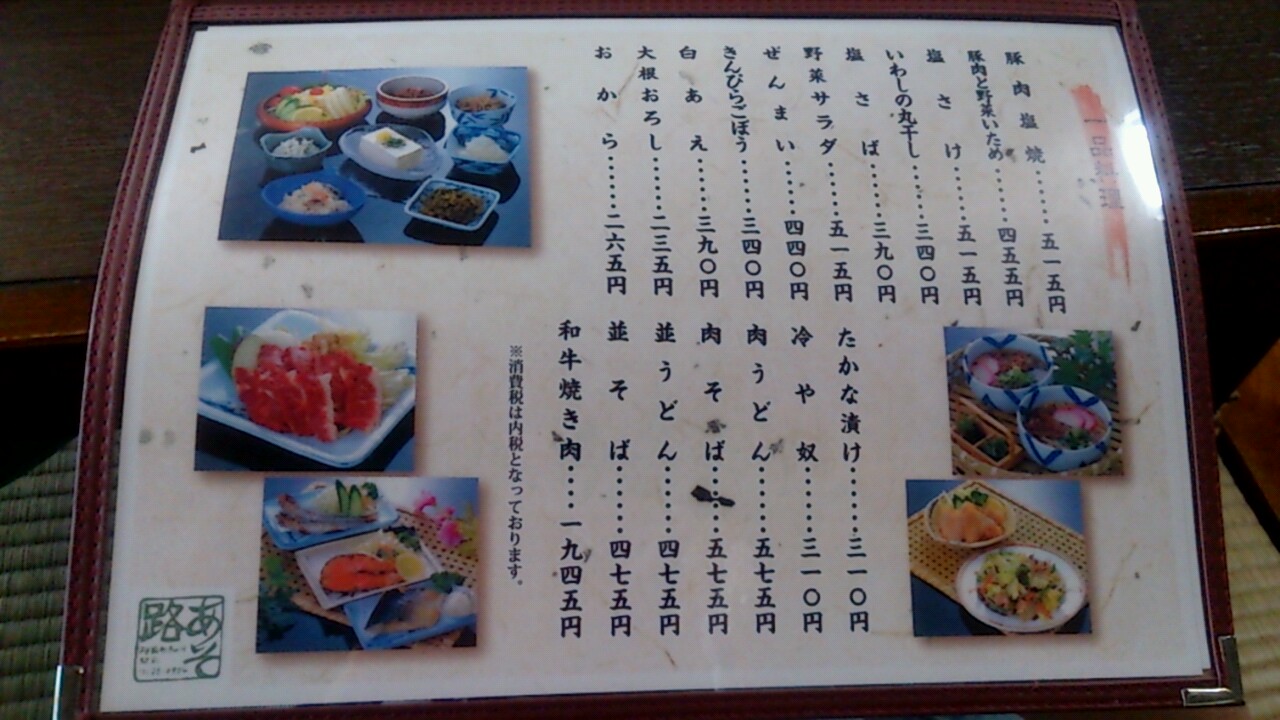 一品料理
豚肉塩焼……五一五円
豚肉と野菜いため……四五五円
塩さけ……五一五円
いわしの丸干し……三四〇円
塩さば……三九〇円
野菜サラダ……五一五円
ぜんまい……四四〇円
きんぴらごぼう……三四〇円
白あえ……三九〇円
大根おろし……二三五円
おから……二六五円
たかな漬け……三一〇円
冷や奴……三一〇円
肉うどん……五七五円
肉そば……五七五円
並うどん……四七五円
並そば……四七五円
和牛焼き肉……一九四五円
※消費税は内税となっております。
あそ路